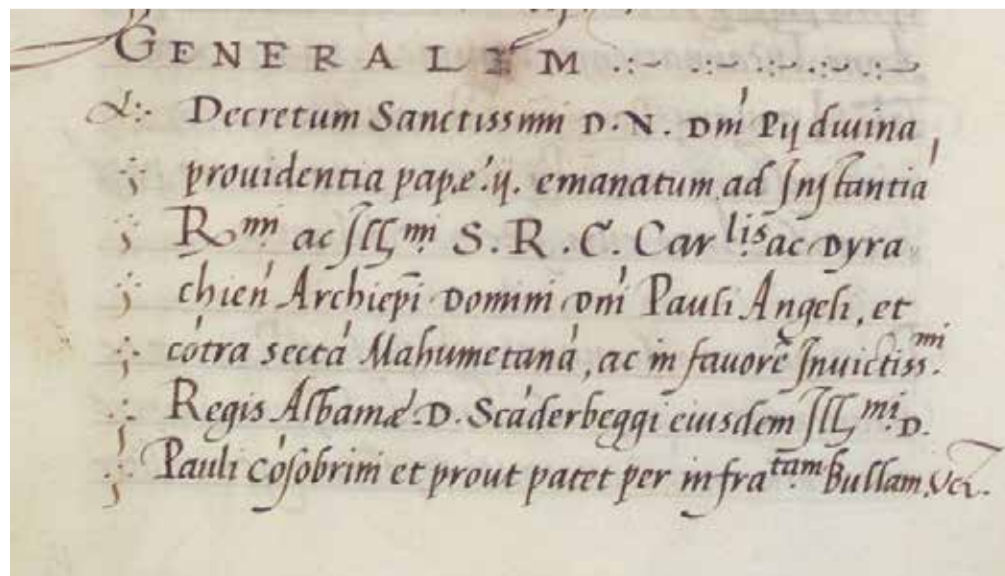 GENERALEM .:~ .:~.:~.:~.:~
Decretum Sanctissimi D. N. Dm̄i Pij diuina
prouidentia papæ .ij. emanatum ad Instantiá
R.mi ac Ill.mi S. R. C. Car.lis ac Dyra
chień Archiepĩ Domini Dm̄i Pauli Angeli, et
cótra sectá Mahumetaná, ac in fauorē Inuictiss.mi
Regis Albaniæ D. Scáderbeggi eiusdem Ill.mi D.
Pauli cósobrini et prout patet per infra.tam Bullam, Vcz̄.